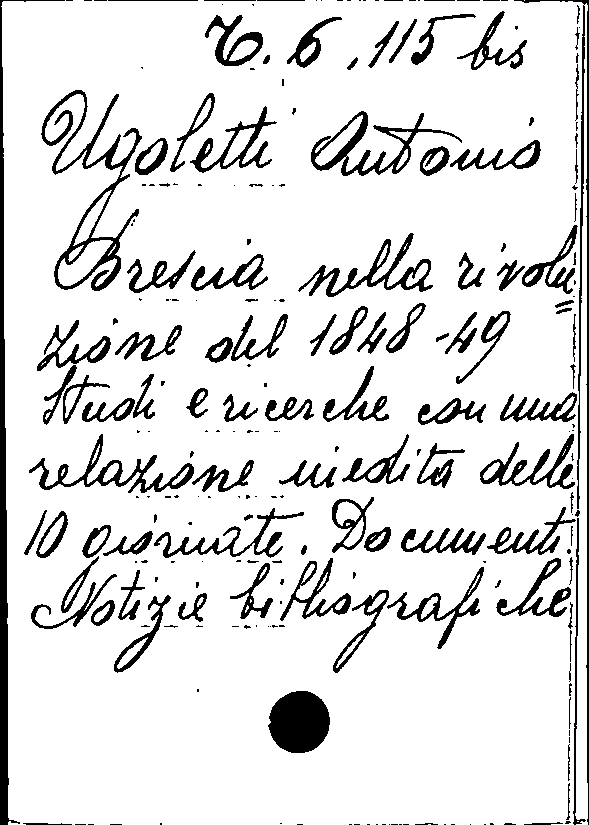 6.115 bis
Ugoletti Antonio
Brescia nella rivolu=
zione del 1848-49
Studi e ricerche con una
relazione inedita delle
10 giornate. Documenti.
Notizie bibliografiche